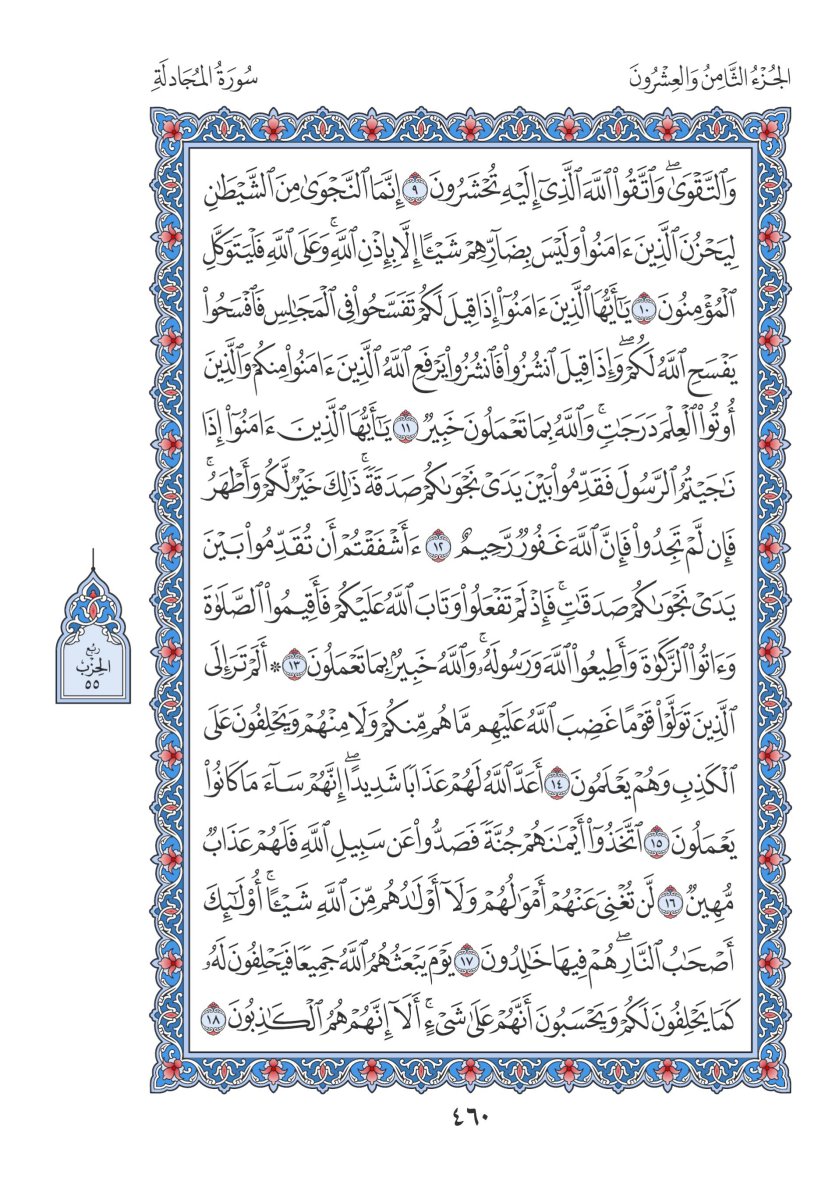 الجُزْءُ الثَّامِنُ وَالعِشْرُونَ
سُورَةُ المُجَادلَةِ
وَٱلتَّقْوَىٰۖ وَٱتَّقُوا۟ ٱللَّهَ ٱلَّذِىٓ إِلَيْهِ تُحْشَرُونَ ٩ إِنَّمَا ٱلنَّجْوَىٰ مِنَ ٱلشَّيْطَـٰنِ
لِيَحْزُنَ ٱلَّذِينَ ءَامَنُوا۟ وَلَيْسَ بِضَآرِّهِمْ شَيْـًٔا إِلَّا بِإِذْنِ ٱللَّهِۚ وَعَلَى ٱللَّهِ فَلْيَتَوَكَّلِ
ٱلْمُؤْمِنُونَ ١٠ يَـٰٓأَيُّهَا ٱلَّذِينَ ءَامَنُوٓا۟ إِذَا قِيلَ لَكُمْ تَفَسَّحُوا۟ فِى ٱلْمَجَـٰلِسِ فَٱفْسَحُوا۟
يَفْسَحِ ٱللَّهُ لَكُمْۖ وَإِذَا قِيلَ ٱنشُزُوا۟ فَٱنشُزُوا۟ يَرْفَعِ ٱللَّهُ ٱلَّذِينَ ءَامَنُوا۟ مِنكُمْ وَٱلَّذِينَ
أُوتُوا۟ ٱلْعِلْمَ دَرَجَـٰتٍۚ وَٱللَّهُ بِمَا تَعْمَلُونَ خَبِيرٌ ١١ يَـٰٓأَيُّهَا ٱلَّذِينَ ءَامَنُوٓا۟ إِذَا
نَـٰجَيْتُمُ ٱلرَّسُولَ فَقَدِّمُوا۟ بَيْنَ يَدَىْ نَجْوَىٰكُمْ صَدَقَةًۚ ذَٰلِكَ خَيْرٌ لَّكُمْ وَأَطْهَرُۚ
فَإِن لَّمْ تَجِدُوا۟ فَإِنَّ ٱللَّهَ غَفُورٌ رَّحِيمٌ ١٢ ءَأَشْفَقْتُمْ أَن تُقَدِّمُوا۟ بَيْنَ
يَدَىْ نَجْوَىٰكُمْ صَدَقَـٰتٍۚ فَإِذْ لَمْ تَفْعَلُوا۟ وَتَابَ ٱللَّهُ عَلَيْكُمْ فَأَقِيمُوا۟ ٱلصَّلَوٰةَ
وَءَاتُوا۟ ٱلزَّكَوٰةَ وَأَطِيعُوا۟ ٱللَّهَ وَرَسُولَهُۥۚ وَٱللَّهُ خَبِيرٌۢ بِمَا تَعْمَلُونَ ١٣ * أَلَمْ تَرَ إِلَى
ٱلَّذِينَ تَوَلَّوْا۟ قَوْمًا غَضِبَ ٱللَّهُ عَلَيْهِم مَّا هُم مِّنكُمْ وَلَا مِنْهُمْ وَيَحْلِفُونَ عَلَى
ٱلْكَذِبِ وَهُمْ يَعْلَمُونَ ١٤ أَعَدَّ ٱللَّهُ لَهُمْ عَذَابًا شَدِيدًاۖ إِنَّهُمْ سَآءَ مَا كَانُوا۟
يَعْمَلُونَ ١٥ ٱتَّخَذُوٓا۟ أَيْمَـٰنَهُمْ جُنَّةً فَصَدُّوا۟ عَن سَبِيلِ ٱللَّهِ فَلَهُمْ عَذَابٌ
مُّهِينٌ ١٦ لَّن تُغْنِىَ عَنْهُمْ أَمْوَٰلُهُمْ وَلَآ أَوْلَـٰدُهُم مِّنَ ٱللَّهِ شَيْـًٔاۚ أُو۟لَـٰٓئِكَ
أَصْحَـٰبُ ٱلنَّارِۖ هُمْ فِيهَا خَـٰلِدُونَ ١٧ يَوْمَ يَبْعَثُهُمُ ٱللَّهُ جَمِيعًا فَيَحْلِفُونَ لَهُۥ
كَمَا يَحْلِفُونَ لَكُمْ وَيَحْسَبُونَ أَنَّهُمْ عَلَىٰ شَىْءٍۚ أَلَآ إِنَّهُمْ هُمُ ٱلْكَـٰذِبُونَ ١٨
رُبْع
الحِزْبُ
٥٥
٤٦٠